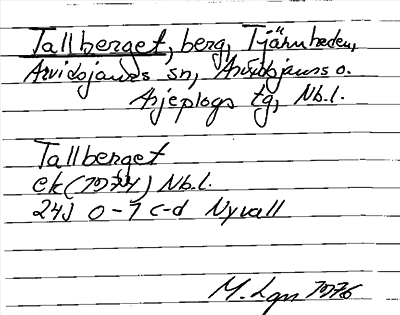 Tallberget, berg, Tjähnheden,
Arvidsjaurs sn, Arvidsjaurs o.
Arjeplogs tg, Nb.l.
Tallberget
ek (1974) Nb.l.
24J 0-1 c-d Nyvall
M. Lgn 1976